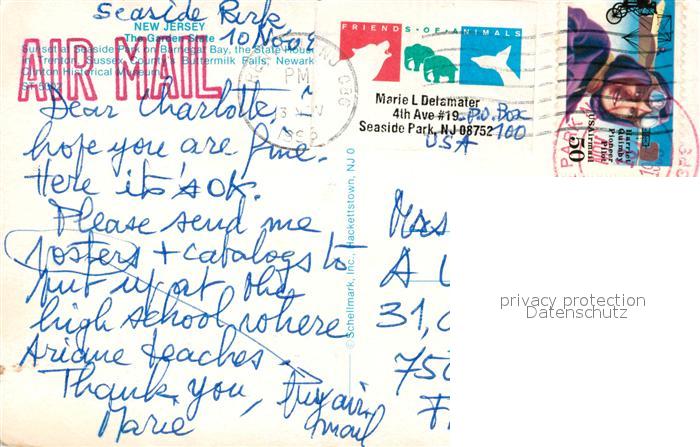 Seaside Park
10 Nov
NEW JERSEY
The Garden State
Sunset at Seaside Park on Barnegat Bay, the State House
in Trenton, Sussex County's Buttermilk Falls, Newark
Clinton Historical Museum
AIR MAIL
PM
Dear Charlotte, i
hope you are fine.
Here it's OK.
Please send me
posters + catalogs to
put up at the
high school where
Ariane teaches.
Thank you,
Marie
by air
mail
© Schellmark, Inc., Hackettstown, NJ 0
FRIENDS·OF·ANIMALS
Marie L Delamater
4th Ave #19
Seaside Park, NJ 08752
P.O. Box
100
USA
Harriet
Quimby
Pioneer
Pilot
USAirmail
50
PARK
Mrs
A
31,
750
F
privacy protection
Datenschutz